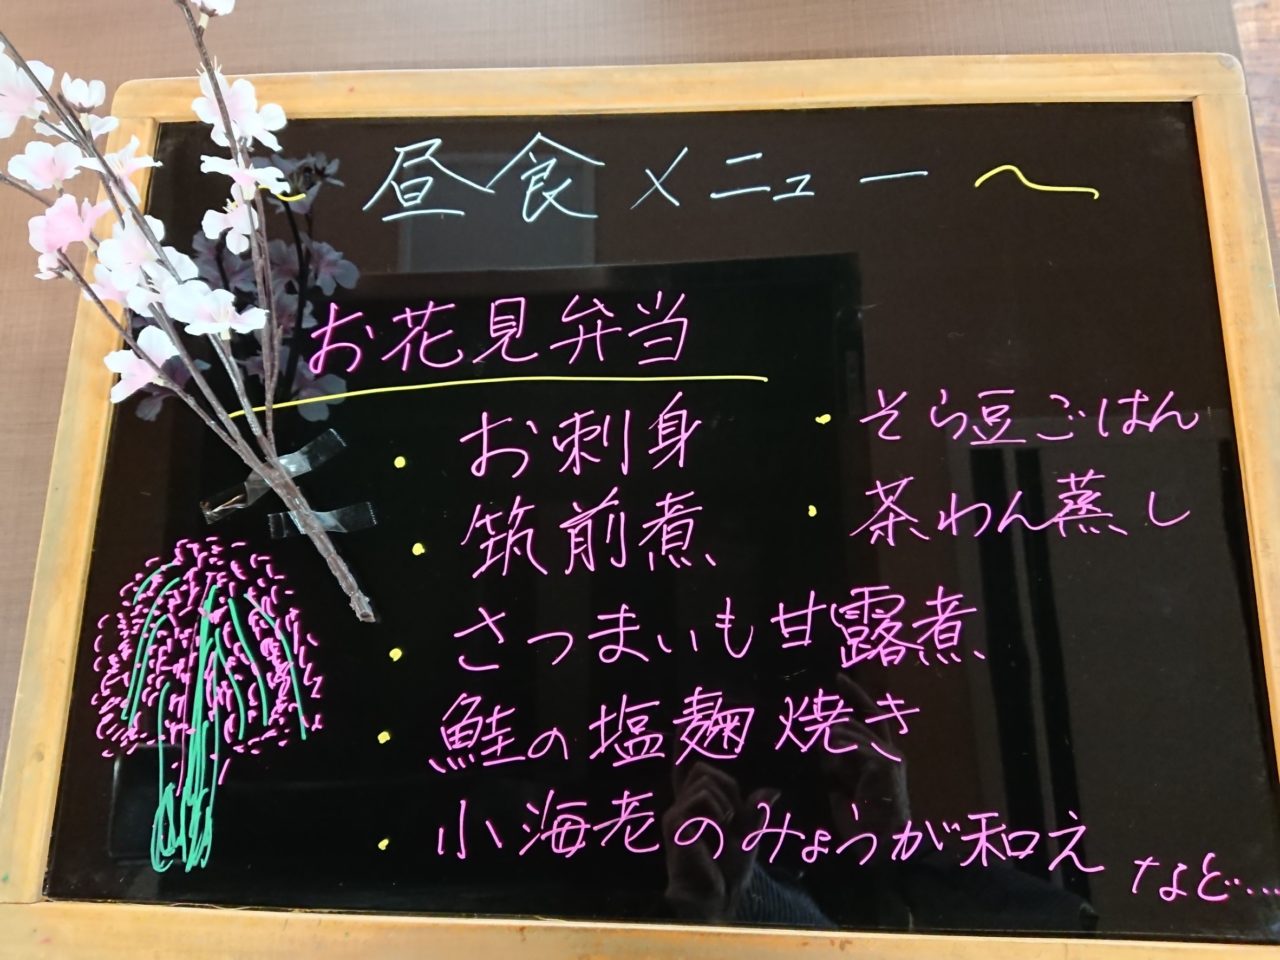 ～ 昼食メニュー ～
お花見弁当
・ お刺身
・ 筑前煮
・ さつまいも甘露煮
・ 鮭の塩麹焼き
・ 小海老のみょうが和え
・ そら豆ごはん
・ 茶わん蒸し
など…